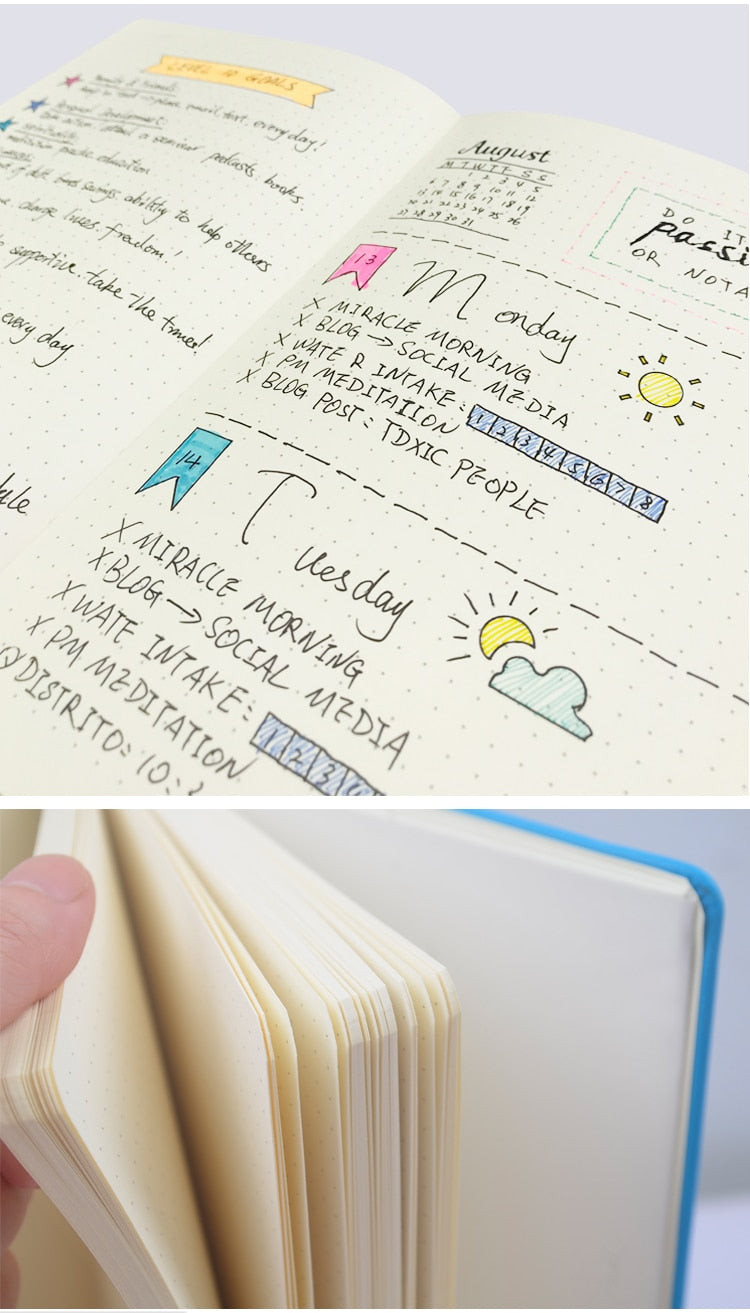 LEVEL 10 GOALS
every day!
Personal Development:
a seminar podcasts, books.
education
ability to help others
change lives, freedom!
supportive take the time!
every day
August
M T W T F S S
1 2 3 4 5
6 7 8 9 10 11 12
13 14 15 16 17 18 19
20 21 22 23 24 25 26
27 28 29 30 31
DO IT
passi
OR NOTA
13
Monday
X MIRACLE MORNING
X BLOG → SOCIAL MEDIA
X WATE R INTAKE: 1 2 3 4 5 6 7 8
X PM MEDITATION
X BLOG POST: TOXIC PEOPLE
14
Tuesday
X MIRACLE MORNING
X BLOG → SOCIAL MEDIA
X WATE INTAKE: 1 2 3
X PM MEDITATION
@DISTRITO: 10: